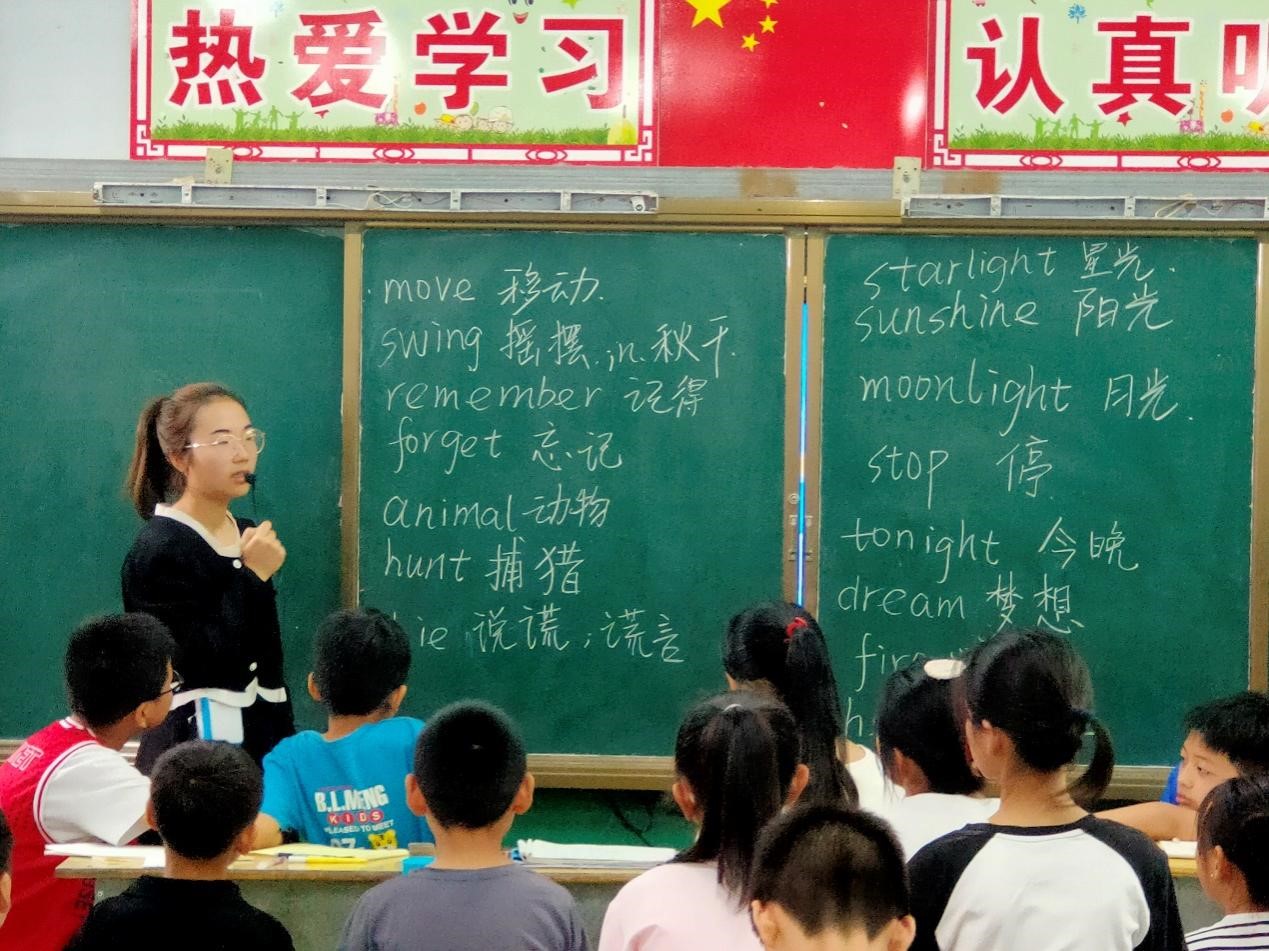 热爱学习
认真听
move 移动.
swing 摇摆.in.秋千.
remember 记得
forget 忘记
animal 动物
hunt 捕猎
lie 说谎;谎言
starlight 星光.
sunshine 阳光
moonlight 月光.
stop 停
tonight 今晚
dream 梦想
B.L.MENG
KIDS
PLEASED TO MEET